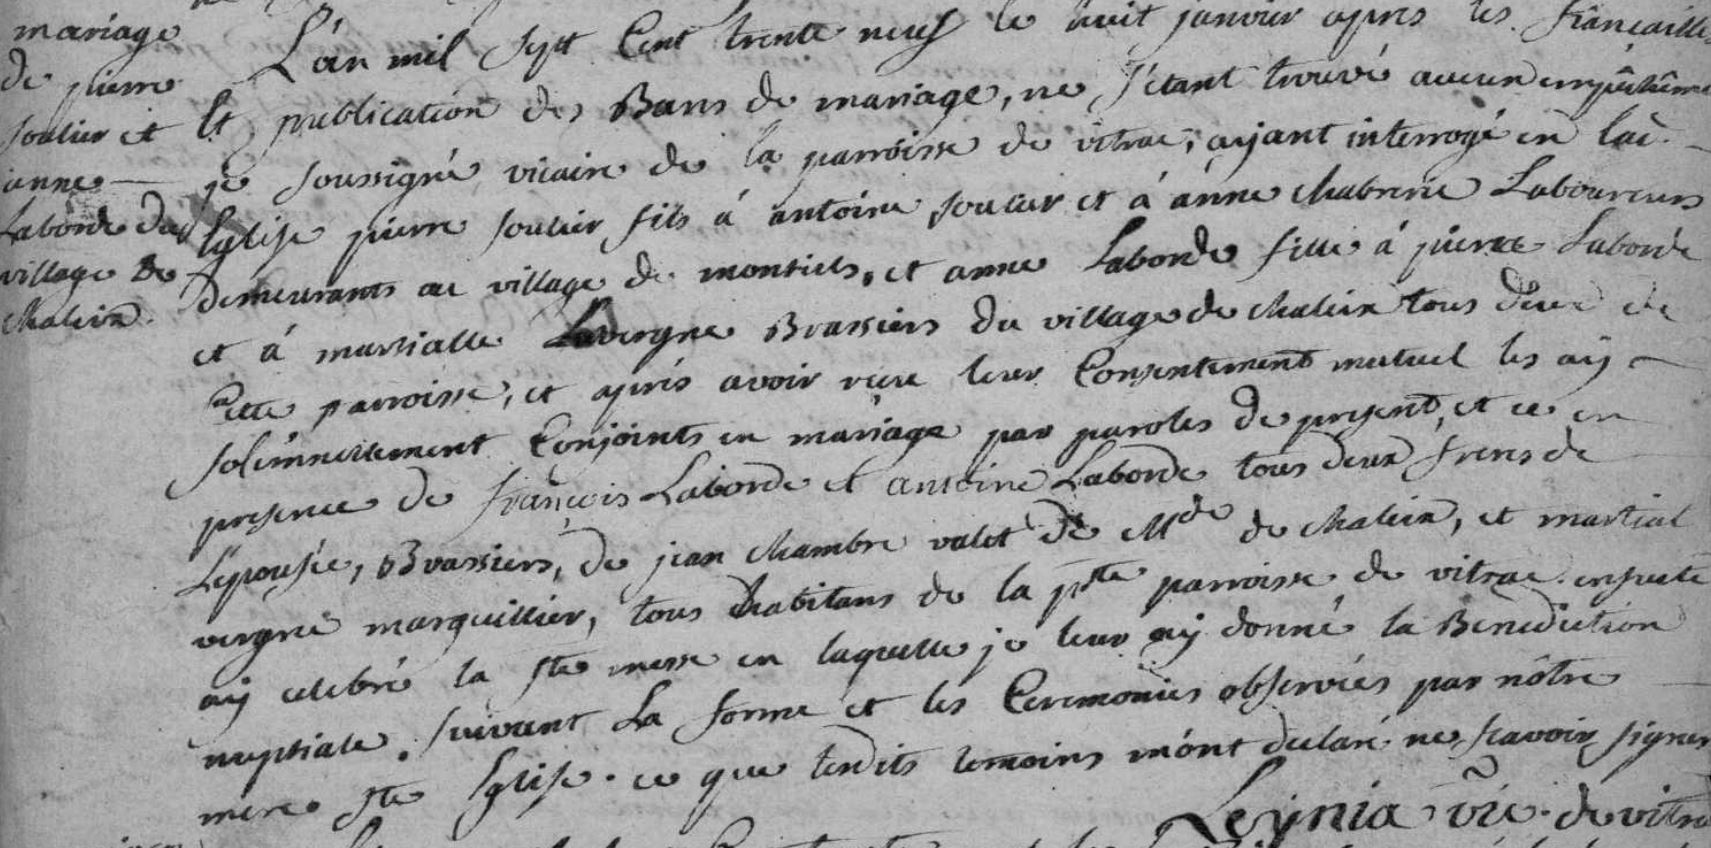 mariage
de pierre
soulier et
anne
Laborde du
village de
chaleix.
L'an mil sept Cent trente neuf le huit janvier apres les fiançailles
Et publication des Bans de mariage, ne s'etant trouvé aucun empêchême
je soussigné vicaire de la parroisse de vitrac, ayant interrogé en lad.
Eglise pierre soulier fils à antoine soulier et à anne chabrerie Laboureurs
demeurants au village de montiels, et anne Laborde fille à pierre Laborde
et à martialle Lavergne Brassiers du village de chaleix tous deux de
cette parroisse, et après avoir receu leur Consentement mutuel les aÿ
solemnellement Conjoints en mariage par paroles de present, et ce en
presence de françois Laborde et antoine Laborde tous deux freres de
L'epousée, Brassiers, de jean chambre valet de Mde de chaleix, et martial
vergne marguillier, tous habitans de la pnte parroisse de vitrac. ensuite
aÿ celebré la ste messe en laquelle je leur aÿ donné la Benediction
nuptiale. suivant La forme et les Ceremonies observées par nôtre
mere ste Eglise. ce que lesdits temoins m'ont declaré ne scavoir signer
Leÿnia vic. de vitra